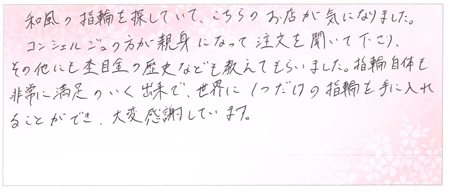 和風の指輪を探していて、こちらのお店が気になりました。
コンシェルジュの方が親身になって注文を聞いて下さり、
その他にも杢目金の歴史なども教えてもらいました。指輪自体も
非常に満足のいく出来で、世界に1つだけの指輪を手に入れ
ることができ、大変感謝しています。